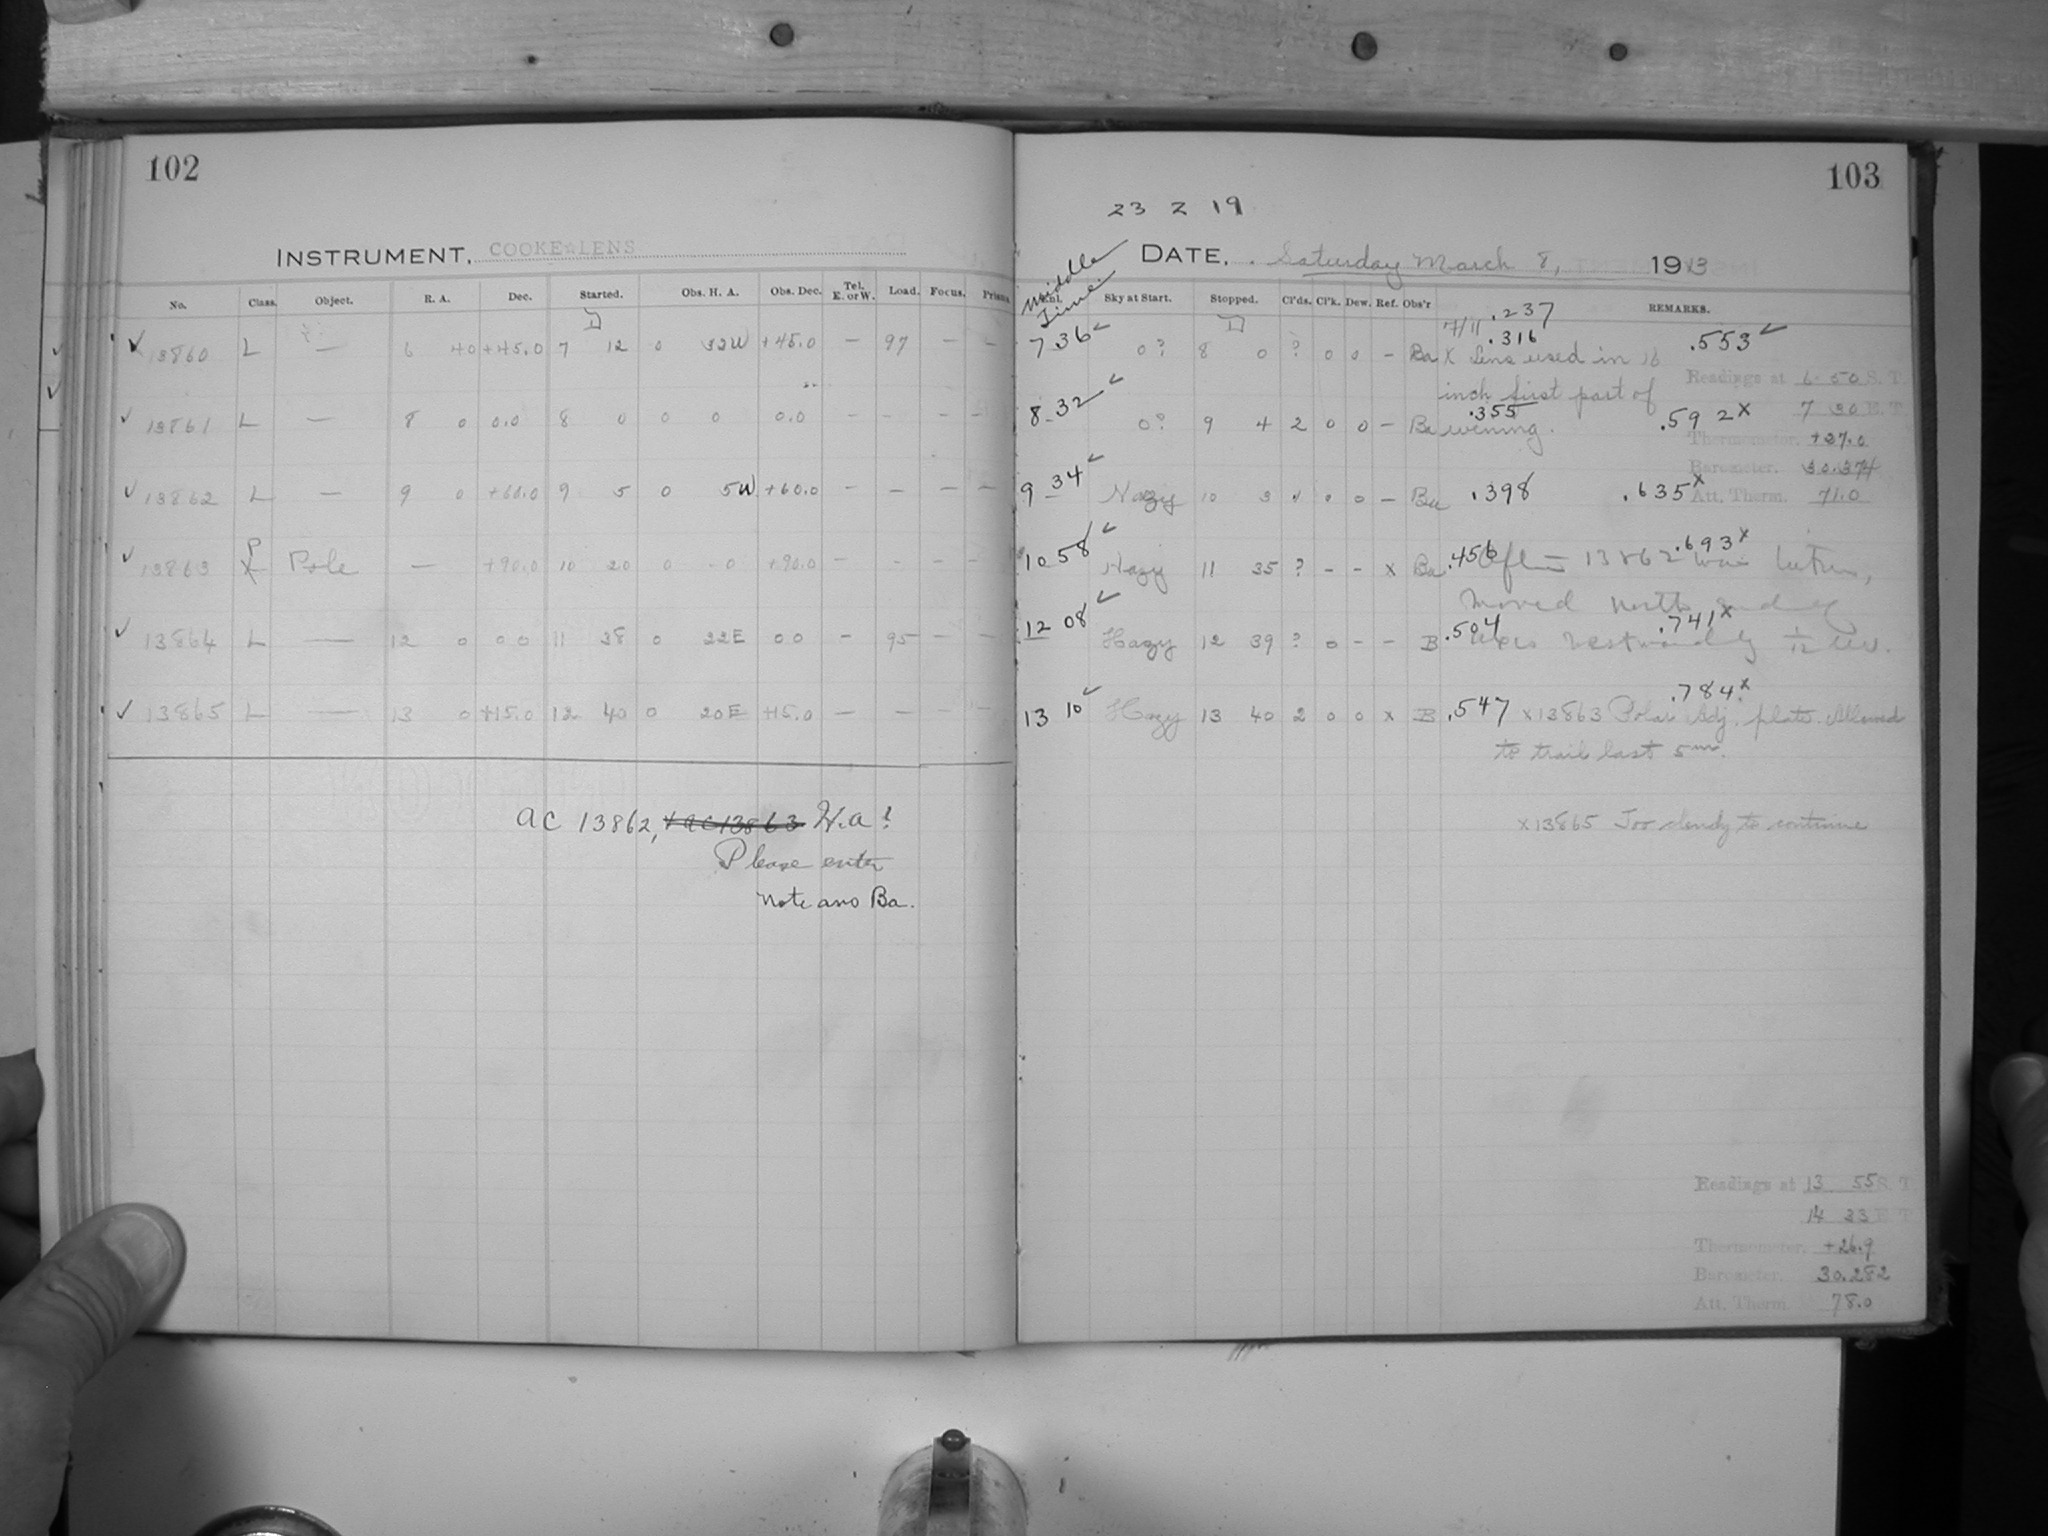 102
INSTRUMENT, COOKE☆LENS
No. Class. Object. R. A. Dec. Started. Obs. H. A. Obs. Dec. Tel. E. or W. Load. Focus. Prisms
13860 L — 6 40 +45.0 7 12 0 32W +45.0 — 97 — —
13861 L — 8 0 0.0 8 0 0 0 0.0 — — — —
13862 L — 9 0 +60.0 9 5 0 5W +60.0 — — — —
13863 P Pole — +90.0 10 20 0 0 +90.0 — — — —
13864 L — 12 0 0.0 11 38 0 22E 0.0 — 95 — —
13865 L — 13 0 +15.0 12 40 0 20E +15.0 — — — —
ac 13862, + ac 13863 H.a!
Please enter
note ans Ba.
103
23 2 19
DATE, Saturday March 8, 1913
Middle Time. Sky at Start. Stopped. Cl'ds. Cl'k. Dew. Ref. Obs'r REMARKS.
.237
7 36 0? 8 0 ? 0 0 — Ba .316 .553
x Lens used in 16
inch first part of
evening.
8 32 0? 9 4 2 0 0 — Ba .355 .592x
9 34 Hazy 10 3 0 0 — Ba .398 .635x
10 58 Hazy 11 35 ? — — x Ba .456 .693x
After 13862 was taken,
moved north
westwardly
12 08 Hazy 12 39 ? 0 — — B .504 .741x
13 10 Hazy 13 40 2 0 0 x B .547 .784x
x13863 Polar Adj. plate. Allowed
to trail last 5m.
x13865 Too cloudy to continue
Readings at 6 50 S. T.
7 30 E. T.
Thermometer. +37.0
Barometer. 30.374
Att. Therm. 71.0
Readings at 13 55 S. T.
14 33 E. T.
Thermometer. +26.9
Barometer. 30.282
Att. Therm. 78.0